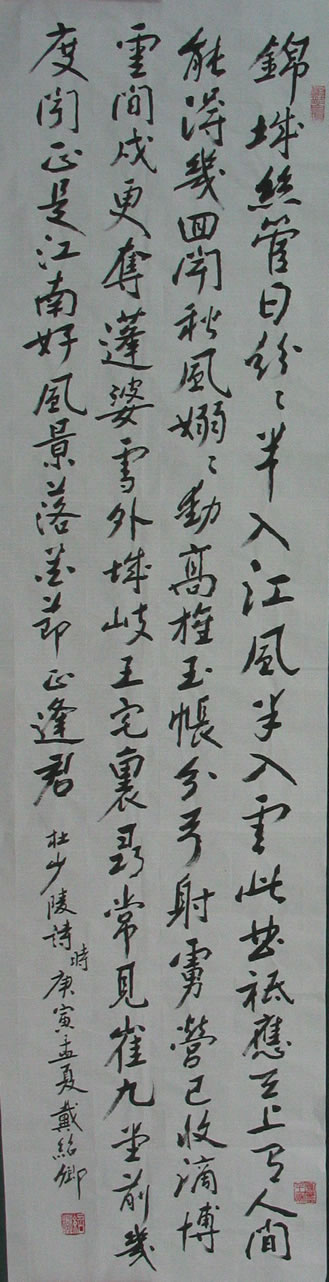 錦城絲管日紛〻半入江風半入雲此曲祗應天上有人間
能得幾回聞秋風嫋〻動高旌玉帳分弓射虜營已收滴博
雲間戍更奪蓬婆雪外城岐王宅裏尋常見崔九堂前幾
度聞正是江南好風景落花節正逢君
杜少陵詩時庚寅孟夏戴紹卿